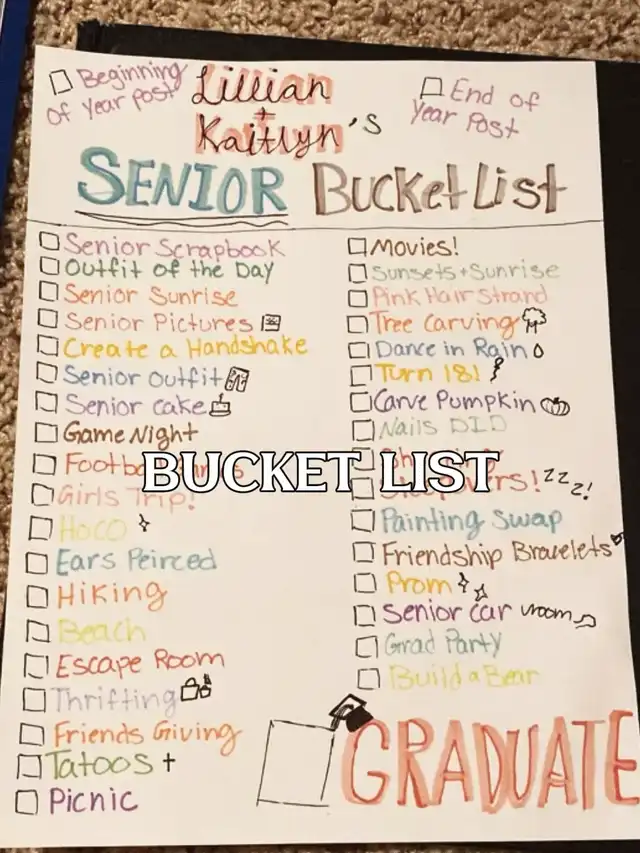 Beginning
of Year post
Lillian
+
Kaitlyn's
End of
Year Post
SENIOR Bucket List
Senior Scrapbook
Outfit of the Day
Senior Sunrise
Senior Pictures
Create a Handshake
Senior Outfit
Senior Cake
Game Night
Girls Trip!
Hoco
Ears Peirced
Hiking
Beach
Escape Room
Thrifting
Friends Giving
Tatoos +
Picnic
Movies!
Sunsets + Sunrise
Pink Hair Strand
Tree Carving
Dance in Rain
Turn 18!
Carve Pumpkin
Nails DID
Sleepovers! zzz!
Painting Swap
Friendship Bracelets
Prom
Senior Car vroom
Grad Party
Build a Bear
GRADUATE
BUCKET LIST